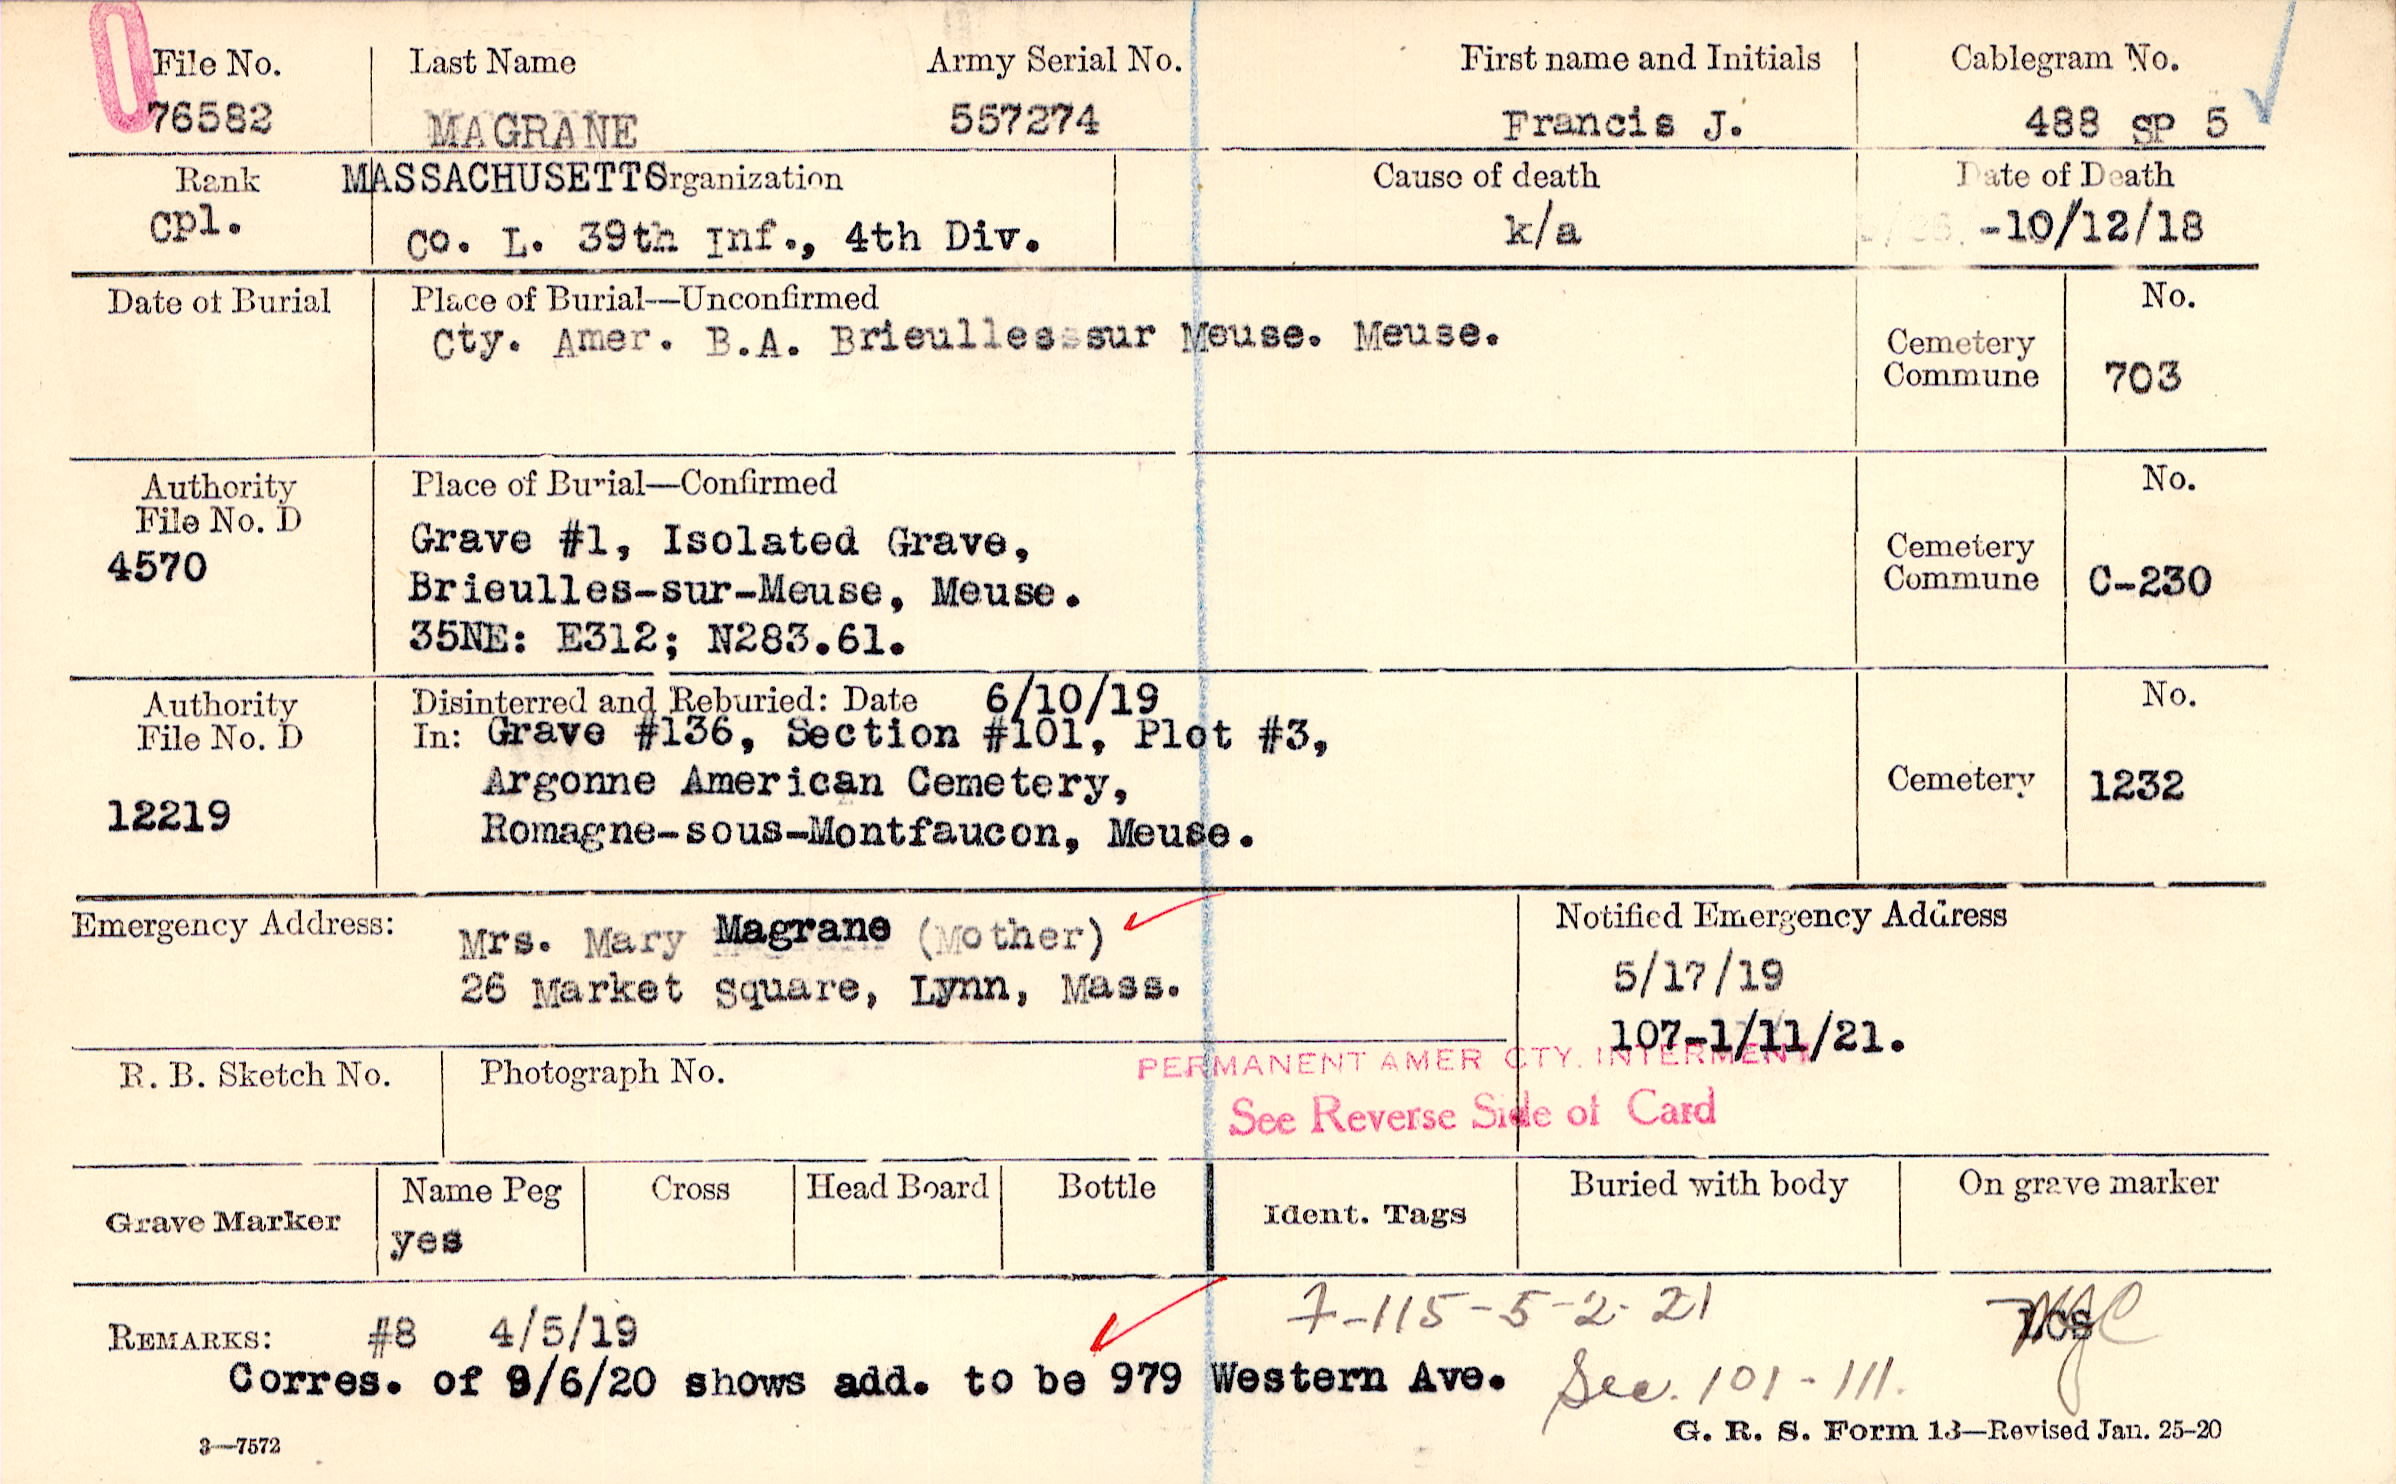 File No. Last Name Army Serial No. First name and Initials Cablegram No.
76582 MAGRANE 557274 Francis J. 488 SP 5
Rank MASSACHUSETTS Organization Cause of death Date of Death
Cpl. Co. L. 39th Inf., 4th Div. k/a -10/12/18
Date of Burial Place of Burial—Unconfirmed No.
Cty. Amer. B.A. Brieulles sur Meuse. Meuse.
Cemetery
Commune 703
Authority Place of Burial—Confirmed No.
File No. D
4570 Grave #1, Isolated Grave,
Brieulles-sur-Meuse, Meuse. Cemetery
Commune C-230
35NE: E312; N283.61.
Authority Disinterred and Reburied: Date 6/10/19 No.
File No. D In: Grave #136, Section #101, Plot #3,
Argonne American Cemetery, Cemetery 1232
12219 Romagne-sous-Montfaucon, Meuse.
Emergency Address: Mrs. Mary Magrane (Mother) Notified Emergency Address
26 Market Square, Lynn, Mass. 5/17/19
107-1/11/21.
PERMANENT AMER CTY. INTERMENT
R. B. Sketch No. Photograph No.
See Reverse Side of Card
Grave Marker Name Peg Cross Head Board Bottle Ident. Tags Buried with body On grave marker
yes
REMARKS: #8 4/5/19 7-115-5-2-21
Corres. of 9/6/20 shows add. to be 979 Western Ave. Sec. 101-111.
3—7572 G. R. S. Form 13—Revised Jan. 25-20